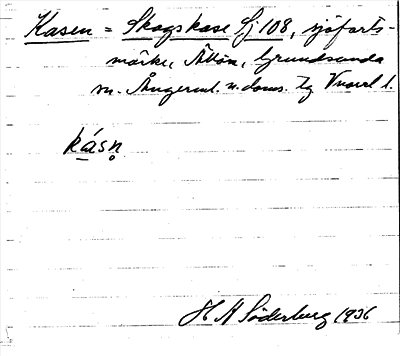 Kasen = Skogskase Sj 108, sjöfarts-
märke, Åkön, Grundsunda
sn. Ångerml. n. doms.
kásn̥
H A Söderberg 1936